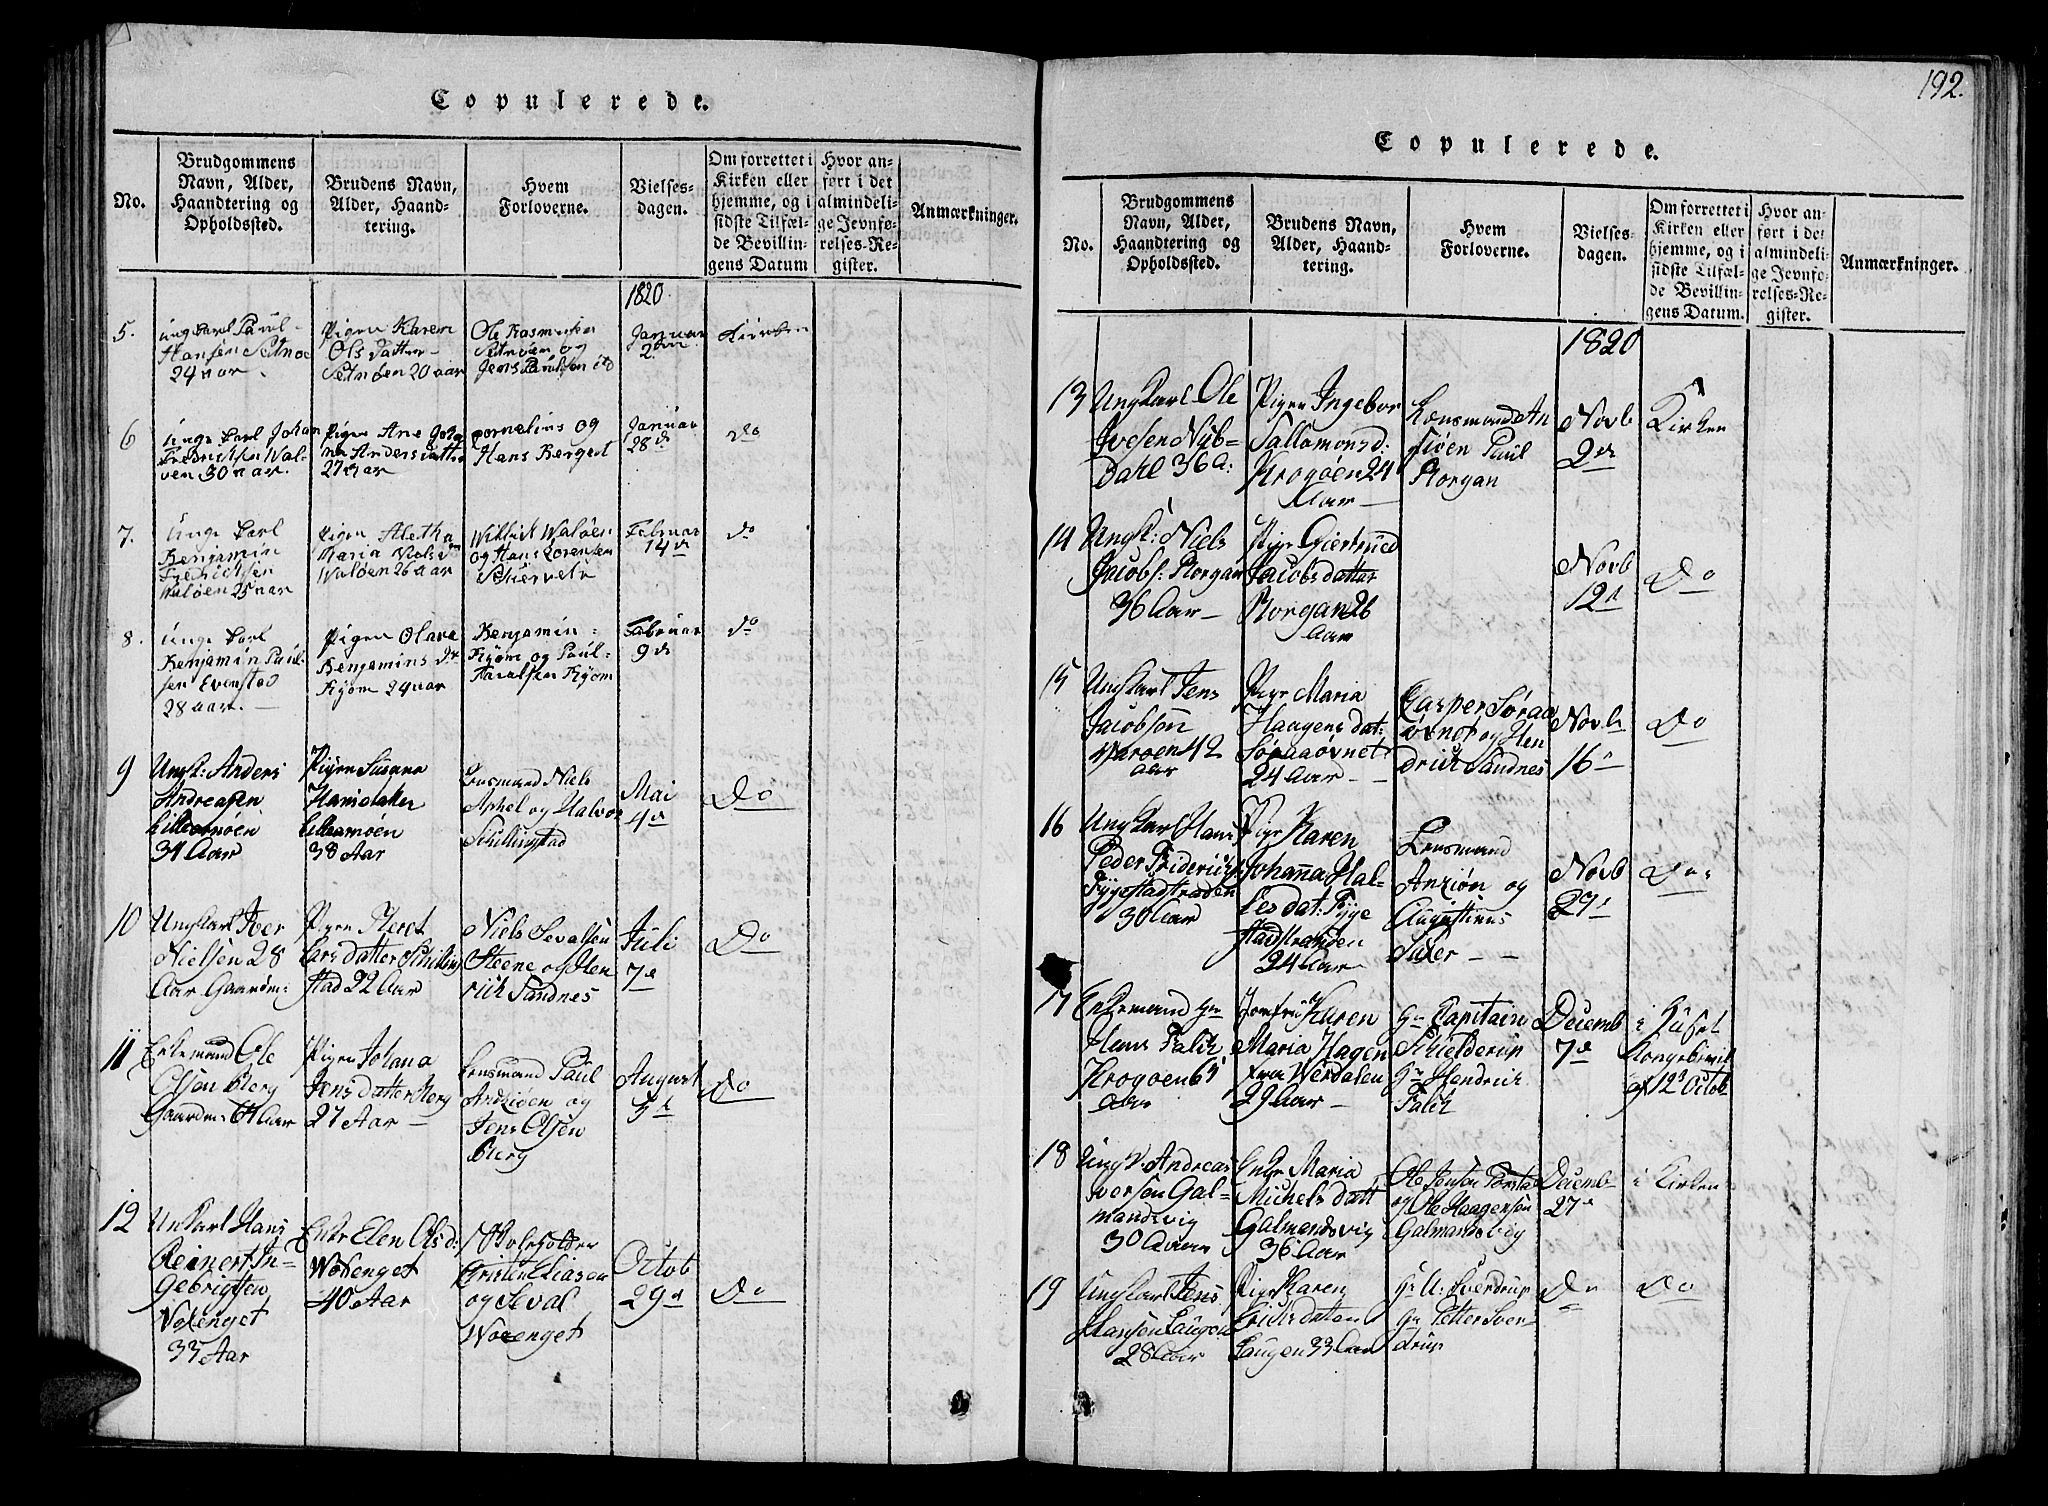 Copulerede.
No.
Brudgommens
Navn, Alder,
Haandtering og
Opholdssted.
Brudens Navn,
Alder, Haand-
tering.
Hvem
Forloverne.
Vielses-
dagen.
Om forrettet i
Kirken eller
hjemme, og i
sidste Tilfæl-
de Bevillin-
gens Datum
Hvor an-
ført i det
almindeli-
ge Jevnfø-
relses-Re-
gister.
Anmærkninger.
1820
5.
ung karl Paul
Hansen Setnøe
24 aar
Pigen Karen
Ols Datter
Setnøen 20 aar
Ole Rasmusen
Setnøen og
Jens Paulsen
Januar
2
Kirken
6
unge karl Johan
Fredriksen Wal-
øen 30 aar.
Pigen Ane Joha
na Andersdatter
27 aar
Cornelius og
Hans Berget
Januar
28 d
Do
7.
unge karl
Benjamin
Fredrichsen
Waløen 25 aar
Pigen Aletha
Maria
Waløen 26 aar
Waløen
og Hans Lorensen
Februar
14 d
Do
8.
unge karl
Benjamin Paul-
sen Evenstad
28 aar.
Pigen Olava
Benjamins dtr
Kyøm 24 aar
Benjamin
Kyøm og Paul
Kyøm
Februar
9 d
Do
9
Ungk: Anders
Andreasen
Lilleamøen
34 Aar
Pigen Susana
Hansdatter
Lilleamøen
38 Aar
Lensmand Niels
Aphel og Halvor
Schillingstad
Mai
4d
Do
10
Ungkarl Iver
Nielsen 28
Aar Gaardm:
Pigen Meret
Larsdatter Schilling
stad 22 Aar
Niels Sevalsen
Steene og Hen
rich Sandnes
Juli
7 d
Do
11
Enkemand Ole
Olsen Berg
Gaardm: 64 Aar
Pigen Johana
Jensdatter Berg
27 Aar
Lensmand Paul
Anzioen og
Jens Olsen
Berg
August
3 d
Do
12
Unkarl Hans
Reinert In-
gebrigtsen
Voxenget
33 Aar
Enke Elen Olsd:
Woxenget
40 Aar
Christen Eliasen
og Seval
Woxenget
Octob
29 d
Do
192.
Copulerede.
No.
Brudgommens
Navn, Alder,
Haandtering og
Opholdssted.
Brudens Navn,
Alder, Haand-
tering.
Hvem
Forloverne.
Vielses-
dagen.
Om forrettet i
Kirken eller
hjemme, og i
sidste Tilfæl-
de Bevillin-
gens Datum.
Hvor an-
ført i det
almindeli-
ge Jevnfø-
relses-Re-
gister.
Anmærkninger.
1820
13
Ungkarl Ole
Ivesen Nyb-
Dahl 36 a:
Pigen Ingebor
Sallomonsd:
Krogøen 24
Aar
Lensmand An
siøen Paul
Korgan
Novb
2 d
Kirken
14
Ungk: Niels
Jacobs: Korgan
36 Aar
Pige Giertrud
Jacobsdatter
Korgan 26
Aar
Novb
12 d
Do
15
Ungkarl Jens
Jacobsøn
42
Aar
Pige Maria
Haagensdat:
Søraaøvnet
24 Aar
Casper Søraa
øvnet og Hen
drich Sandnes
Novb
16 d
Do
16
Ungkarl Hans
Peder Friderichs
Fygestadstranden
30 Aar
Pige Karen
Johanna Hal-
lesdat: Fyge
stadstranden
24 Aar
Lensmand
Anziøn og
Augustinus
Novb
29 d
Do
17
Enkemand Hr
Hans Falch
Krogøen 65
Aar
Jomfru Karen
Maria Hagen
fra Werdalen
29 Aar
Hr Capitain
Schielderup
Hr Hendrich
Falch
Decemb
7 d
i Huset
Kongebrevil
af 12 d Octob
18
Ungk. Andreas
Iversen Gal-
mandsvig
30 Aar
Enke Maria
Michels Datt
Galmandsvig
36 Aar
Ole
og Ole Haagensøn
Galmandsvig
Decemb
27 d
i Kirken
19
Ungkarl Jens
Hansen Laugen
28 Aar
Pige Karen
Erichsdatter
Laugen 33 Aar
Hr U: Sverdrup
Hr Petter Sver-
drup
Do
Do